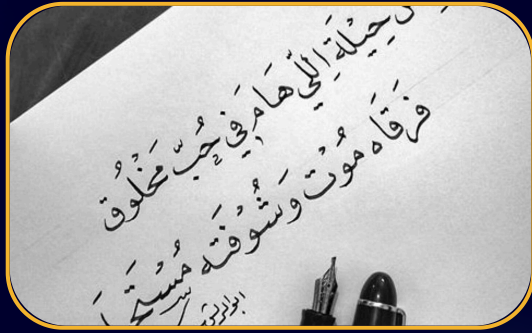 حِيلَةِ اللّي هَامَ فِي حُبّ مَخْلُوق
فَرقَاه مُوْت وَشُوْفَتَه